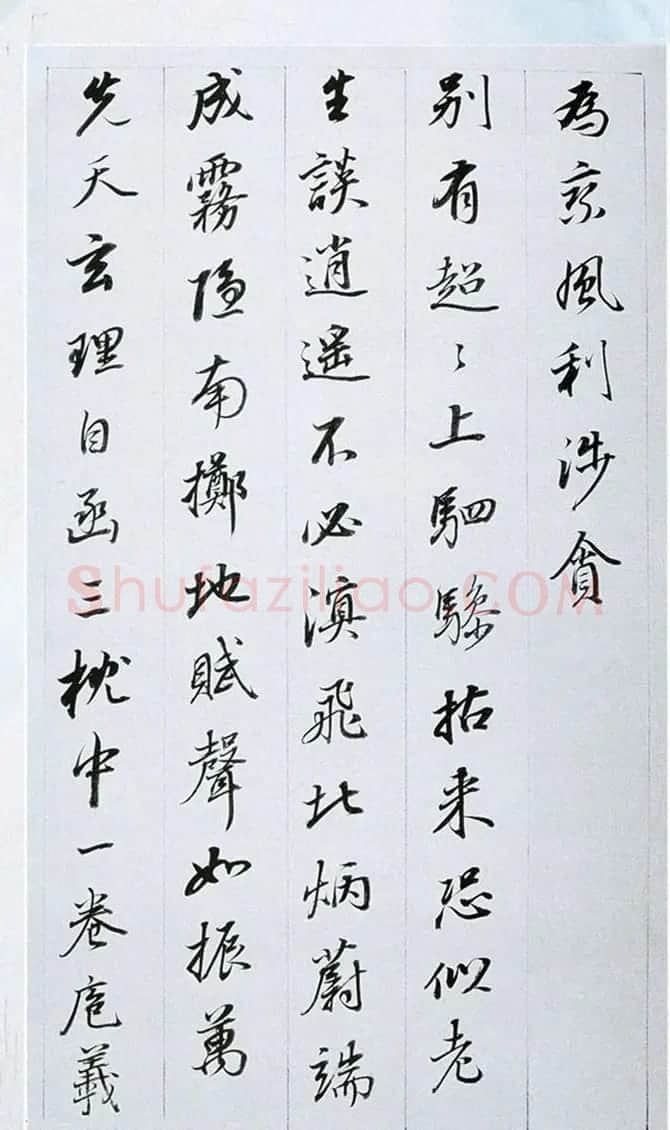 為京風利涉貪
别有超〻上駟驂拈来恐似老
生談逍遥不必溟飛北炳蔚端
成霧隱南擲地賦聲如振萬
先天玄理自函三枕中一卷庖羲
Shufaziliao.COM